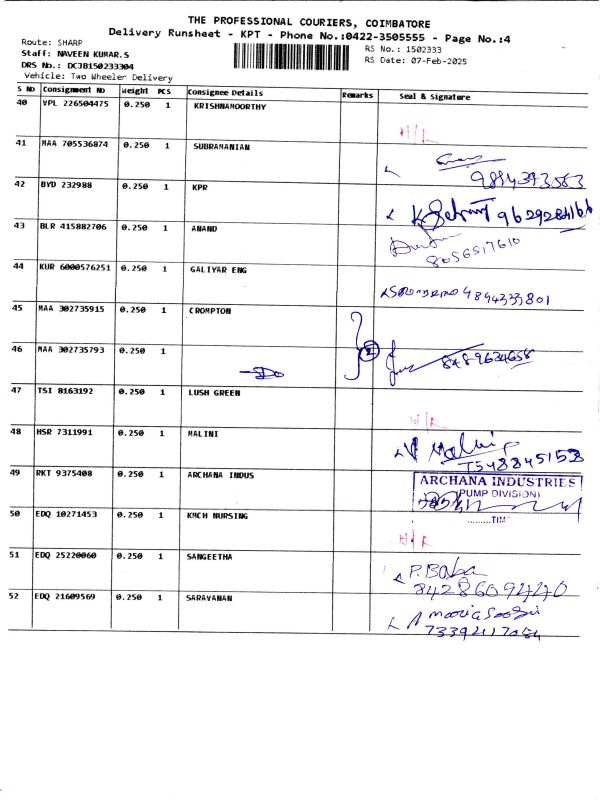 THE PROFESSIONAL COURIERS, COIMBATORE
Delivery Runsheet - KPT - Phone No.:0422-3505555 - Page No.:4
Route: SHARP
RS No.: 1502333
Staff: NAVEEN KUMAR.S
RS Date: 07-Feb-2025
DRS No.: DCJB150233304
Vehicle: Two Wheeler Delivery
S No Consignment No Weight PCS Consignee Details Remarks Seal & Signature
40 VPL 226504475 0.250 1 KRISHNAMOORTHY
H/R
41 MAA 705536874 0.250 1 SUBRAMANIAN
9894393563
42 BYD 232988 0.250 1 KPR
9629284166
43 BLR 415882706 0.250 1 ANAND
8056517610
44 KUR 6000576251 0.250 1 GALIYAR ENG
9894333801
45 MAA 302735915 0.250 1 CROMPTON
2
46 MAA 302735793 0.250 1
-Do 8489634658
47 TSI 8163192 0.250 1 LUSH GREEN
H/R
48 HSR 7311991 0.250 1 MALINI
Malini
7548845153
49 RKT 9375408 0.250 1 ARCHANA INDUS
ARCHANA INDUSTRIES
(PUMP DIVISION)
50 EDQ 10271453 0.250 1 KMCH NURSING
H/R
51 EDQ 25220060 0.250 1 SANGEETHA
P. Baba
8428609440
52 EDQ 21609569 0.250 1 SARAVANAN